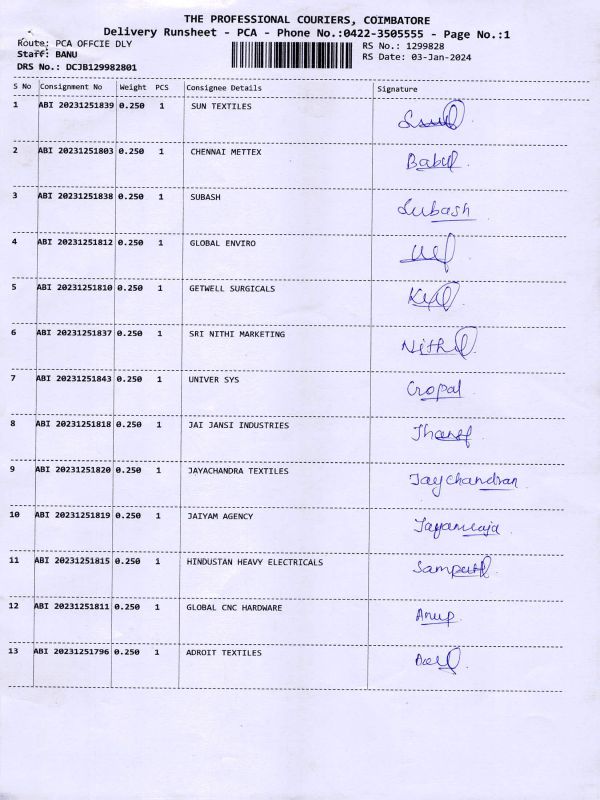 THE PROFESSIONAL COURIERS, COIMBATORE
Delivery Runsheet - PCA - Phone No.:0422-3505555 - Page No.:1
Route: PCA OFFCIE DLY RS No.: 1299828
Staff: BANU RS Date: 03-Jan-2024
DRS No.: DCJB129982801
S No Consignment No Weight PCS Consignee Details Signature
1 ABI 20231251839 0.250 1 SUN TEXTILES
2 ABI 20231251803 0.250 1 CHENNAI METTEX Babu
3 ABI 20231251838 0.250 1 SUBASH Subash
4 ABI 20231251812 0.250 1 GLOBAL ENVIRO
5 ABI 20231251810 0.250 1 GETWELL SURGICALS
6 ABI 20231251837 0.250 1 SRI NITHI MARKETING Nithi
7 ABI 20231251843 0.250 1 UNIVER SYS Gopal
8 ABI 20231251818 0.250 1 JAI JANSI INDUSTRIES
9 ABI 20231251820 0.250 1 JAYACHANDRA TEXTILES Jaychandran
10 ABI 20231251819 0.250 1 JAIYAM AGENCY
11 ABI 20231251815 0.250 1 HINDUSTAN HEAVY ELECTRICALS Sampath
12 ABI 20231251811 0.250 1 GLOBAL CNC HARDWARE Anup
13 ABI 20231251796 0.250 1 ADROIT TEXTILES